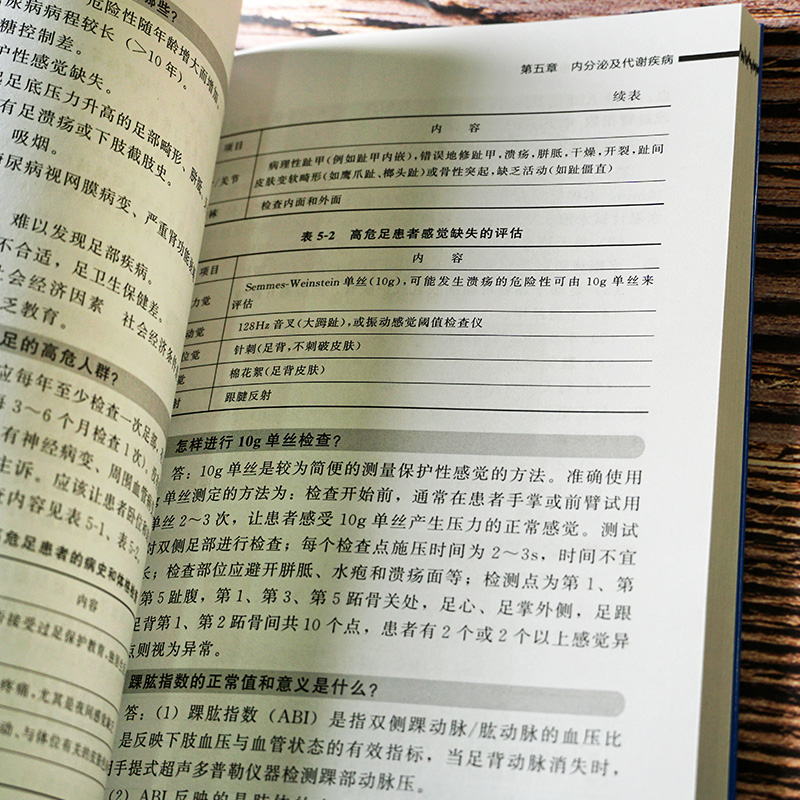 危险性随年龄增大而增加
尿病病程较长（>10年）。
糖控制差。
护性感觉缺失。
足底压力升高的足部畸形、胼胝
有足溃疡或下肢截肢史。
吸烟。
尿病视网膜病变、严重肾功能
难以发现足部疾病。
不合适，足卫生保健差。
会经济因素 社会经济条件
乏教育。
足的高危人群？
应每年至少检查一次足部
3～6个月检查1次）
有神经病变、周围血管
主诉。应该让患者卧位
内容见表5-1、表5-2
高危足患者的病史和体
内容
接受过足保护教育
疼痛，尤其是夜间
动、与体位有关的
第五章 内分泌及代谢疾病
续表
项目 内容
/关节 病理性趾甲（例如趾甲内嵌），错误地修趾甲，溃疡，胼胝，干燥，开裂，趾间
皮肤变软畸形（如鹰爪趾、榔头趾）或骨性突起，缺乏活动（如趾僵直）
袜 检查内面和外面
表 5-2 高危足患者感觉缺失的评估
项目 内容
力觉 Semmes-Weinstein 单丝（10g），可能发生溃疡的危险性可由 10g 单丝来
评估
动觉 128Hz 音叉（大踇趾），或振动感觉阈值检查仪
位觉 针刺（足背，不刺破皮肤）
觉 棉花絮（足背皮肤）
射 跟腱反射
怎样进行 10g 单丝检查？
答：10g 单丝是较为简便的测量保护性感觉的方法。准确使用
单丝测定的方法为：检查开始前，通常在患者手掌或前臂试用
单丝 2～3 次，让患者感受 10g 单丝产生压力的正常感觉。测试
对双侧足部进行检查；每个检查点施压时间为 2～3s，时间不宜
长；检查部位应避开胼胝、水疱和溃疡面等；检测点为第 1、第
第 5 趾腹，第 1、第 3、第 5 跖骨关处，足心、足掌外侧，足跟
足背第 1、第 2 跖骨间共 10 个点，患者有 2 个或 2 个以上感觉异
点则视为异常。
踝肱指数的正常值和意义是什么？
答：（1）踝肱指数（ABI）是指双侧踝动脉/肱动脉的血压比
是反映下肢血压与血管状态的有效指标，当足背动脉消失时，
用手提式超声多普勒仪器检测踝部动脉压。
（2）ABI 反映的是肢体的